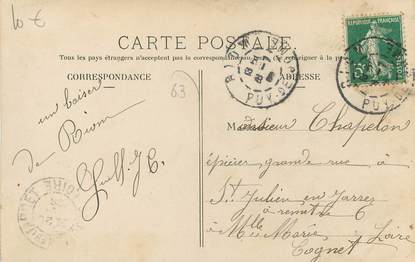 10 €
CARTE POSTALE
Tous les pays étrangers n'acceptent pas la correspondance au à la poste.
CORRESPONDANCE
ADRESSE
RIOM
PUY-DE-DOME
REPUBLIQUE FRANÇAISE
5c
63
un baiser
de Riom
Monsieur Chapelon
épicier grande rue à
St Julien en Jarrez
à remettre à Loire
Mlle Marie
Cognet
LOIRE